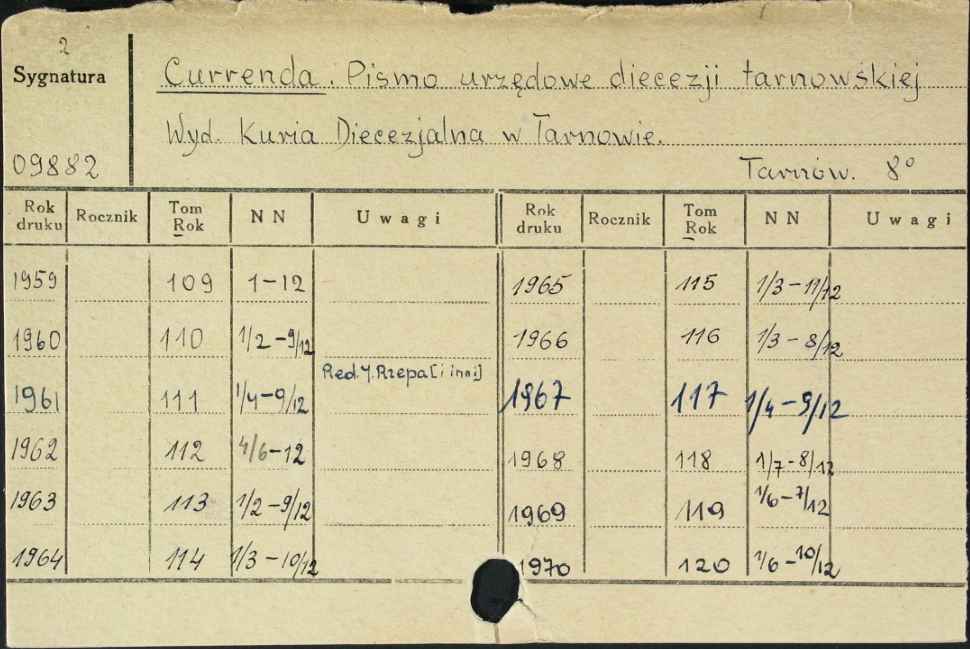 2
Sygnatura
Currenda. Pismo urzędowe diecezji tarnowskiej
Wyd. Kuria Diecezjalna w Tarnowie.
09882
Tarnów. 8°
Rok druku Rocznik Tom Rok NN Uwagi Rok druku Rocznik Tom Rok NN Uwagi
1959 109 1-12 1965 115 1/3-11/12
1960 110 1/2-9/12 1966 116 1/3-8/12
Red. J. Rzepa [i inni]
1961 111 1/4-9/12 1967 117 1/4-9/12
1962 112 4/6-12 1968 118 1/7-8/12
1963 113 1/2-9/12 1969 119 1/6-7/12
1964 114 1/3-10/12 1970 120 1/6-10/12